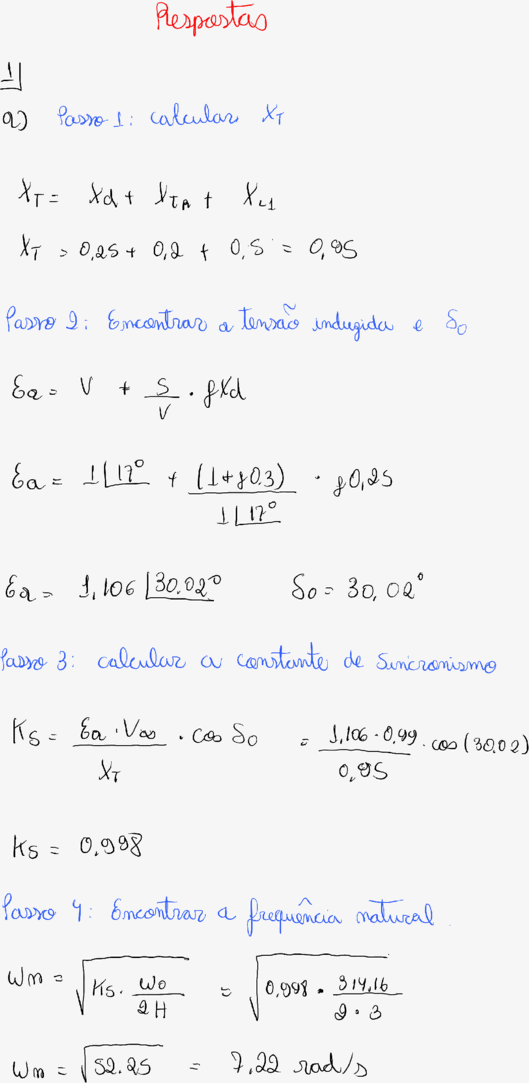 Respostas
1
a) Passo 1: calcular X_T
X_T = Xd + X_TA + X_L1
X_T = 0,25 + 0,2 + 0,5 = 0,95
Passo 2: Encontrar a tensão induzida e δ₀
Ea = V + S/V · jXd
Ea = 1∠17° + (1+j0.3)/(1∠17°) · j0,25
Ea = 1,106∠30.02° δ₀ = 30,02°
Passo 3: calcular a constante de sincronismo
Ks = (Ea · V∞)/X_T · cos δ₀ = (1,106 · 0,99)/0,95 · cos(30.02)
Ks = 0,998
Passo 4: Encontrar a frequência natural.
Wn = √(Ks · W₀/2H) = √(0,998 · 314,16/(2 · 3))
Wn = √52.25 = 7,22 rad/s